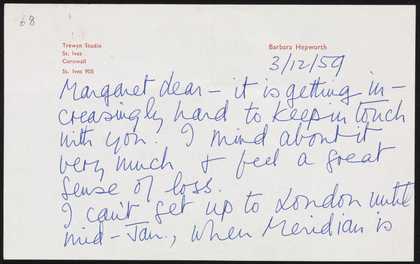 68
Trewyn Studio
St. Ives
Cornwall
St. Ives 905
Barbara Hepworth
3/12/59
Margaret dear – it is getting in-
creasingly hard to keep in touch
with you. I mind about it
very much & feel a great
sense of loss.
I can't get up to London until
mid-Jan., when Meridian is